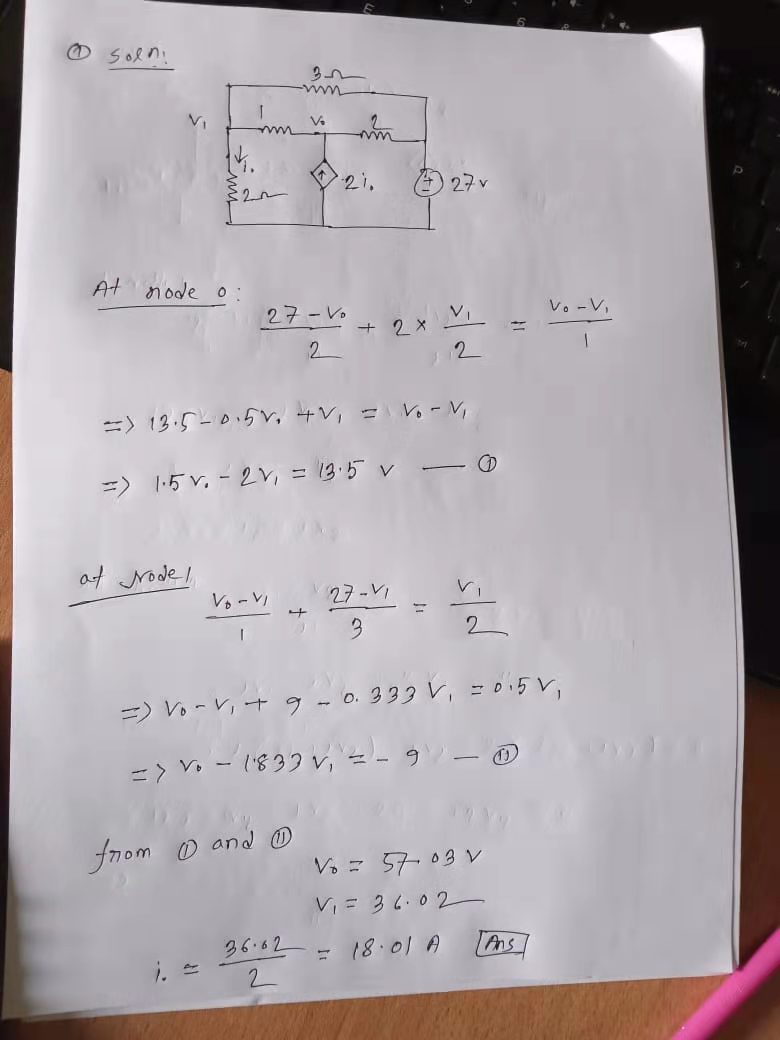 ① Soln:
3Ω
1 V₀ 2
V₁
i₀
2Ω 2i₀ 27v
At node 0:
(27 - V₀)/2 + 2 × V₁/2 = (V₀ - V₁)/1
=> 13.5 - 0.5V₀ + V₁ = V₀ - V₁
=> 1.5V₀ - 2V₁ = 13.5 V — ①
at Node 1
(V₀ - V₁)/1 + (27 - V₁)/3 = V₁/2
=> V₀ - V₁ + 9 - 0.333 V₁ = 0.5 V₁
=> V₀ - 1.833 V₁ = - 9 — ⑪
from ① and ⑪
V₀ = 57.03 V
V₁ = 36.02
i₀ = 36.02/2 = 18.01 A Ans